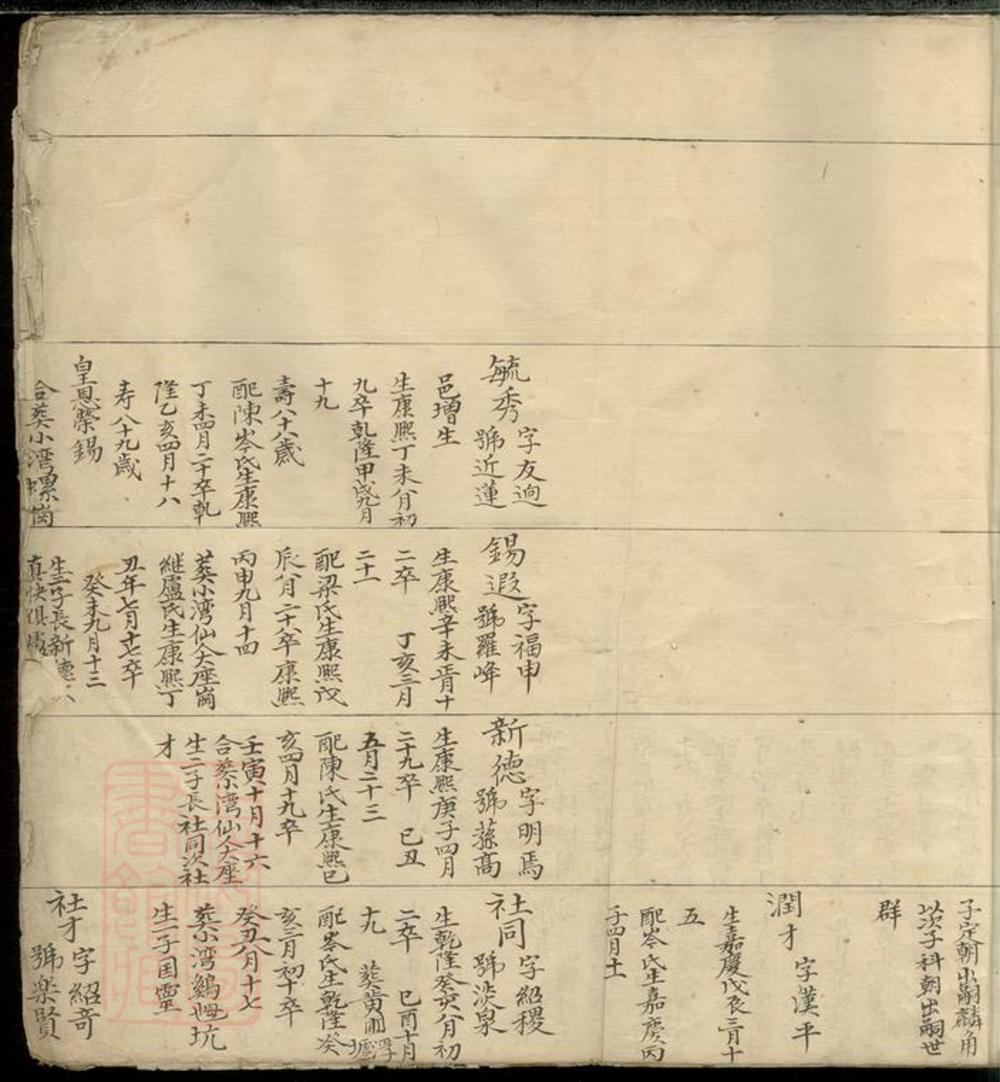 毓秀
字友逈
號近蓮
邑增生
生康熙丁未八月初
九卒乾隆甲戌九月
十九
壽八十八歲
配陳岑氏生康熙
丁未四月二十卒乾
隆乙亥四月十八
寿八十九歲
皇恩榮錫
合葬小湾螺崗
錫遐
字福申
號羅峰
生康熙辛未正月十
二卒 丁亥三月
二十一
配梁氏生康熙戊
辰八月二十八卒康熙
丙申九月十四
葬小湾仙人大座崗
継盧氏生康熙丁
丑年七月十七卒
癸未九月十三
生二子長新德次
真快俱
新德
字明馬
號蓀高
生康熙庚子四月
二十九卒 己丑
五月二十三
配陳氏生康熙己
亥四月十九卒
壬寅十月十六
合葬小湾仙人大座
生二子長社同次社
才
子定朝出嗣麟角
次子科朝出嗣世
群
潤才
字漢平
生嘉慶戊辰三月十
五
配岑氏生嘉慶丙
子四月十
社同
字紹稷
號淡泉
生乾隆癸亥八月初
二卒 己酉十月
十九 葬黄
配岑氏生乾隆癸
亥三月初十卒
癸丑八月十七
葬小湾鷄乸坑
生一子国灵
社才
字紹奇
號楽賢